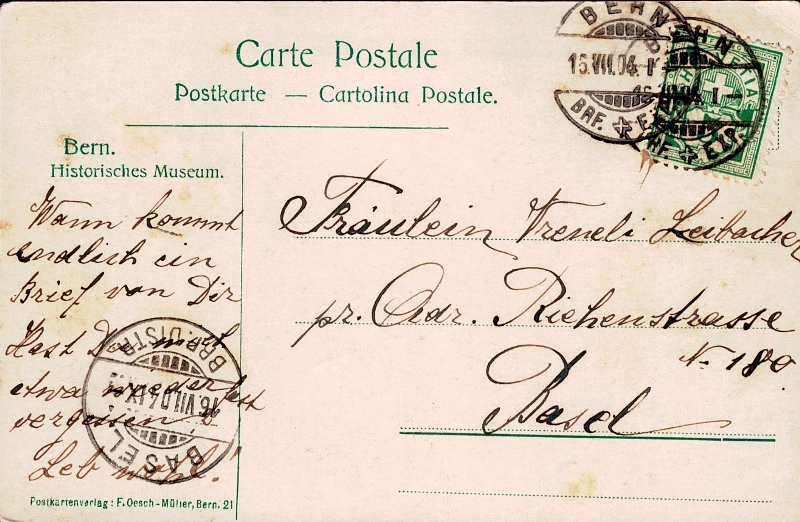 Carte Postale
Postkarte — Cartolina Postale.
BERN
16.VII.04. I
BRF. EXP.
HELVETIA
Bern.
Historisches Museum.
Wann kommt
endlich ein
Brief von Dir
Hast Du mich
etwa wieder fast
vergessen,
Leb wohl!
BASEL
16.VII.04.IX
BRF. DISTR.
Fräulein Vreneli Leibacher
pr. Adr. Riehenstrasse
No 180
Basel
Postkartenverlag: F. Oesch-Müller, Bern. 21